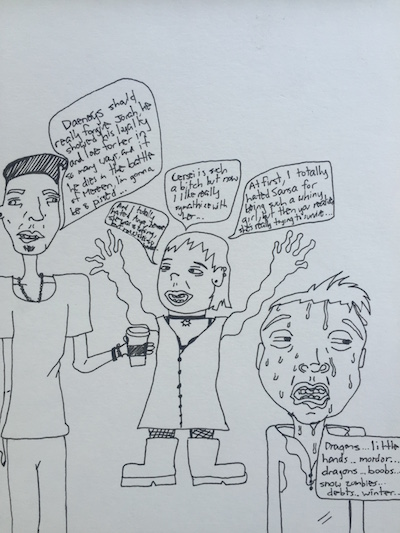 Daenerys should
really forgive Jorah, he
showed his loyalty
and love for her in
so many ways. and if
he dies in the battle
at Meereen I'm gonna
be so pissed...
Cersei is such
a bitch but now
I like really
sympathize with
her...
At first, I totally
hated Sansa for
being such a whiny
girl, but then you realize
she's really trying to survive...
And I totally
hated
Dragons... little
hands.. mordor...
dragons.. boobs..
snow zombies...
debts.. winter...